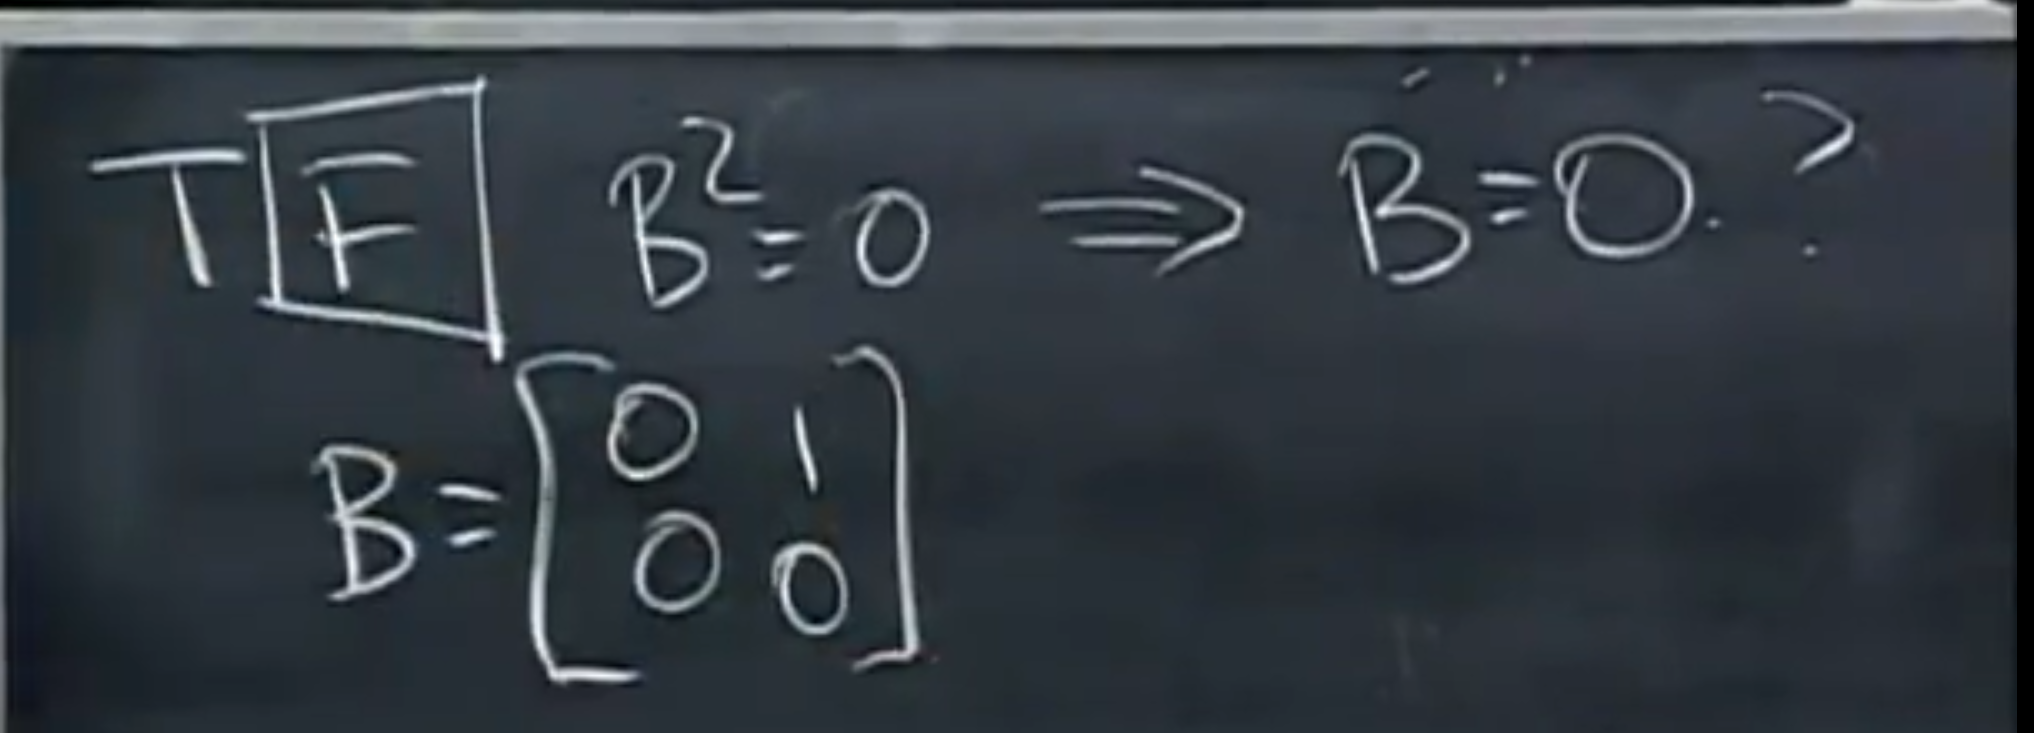 T F B² = 0 ⇒ B = 0. ?
B = [0 1
0 0]